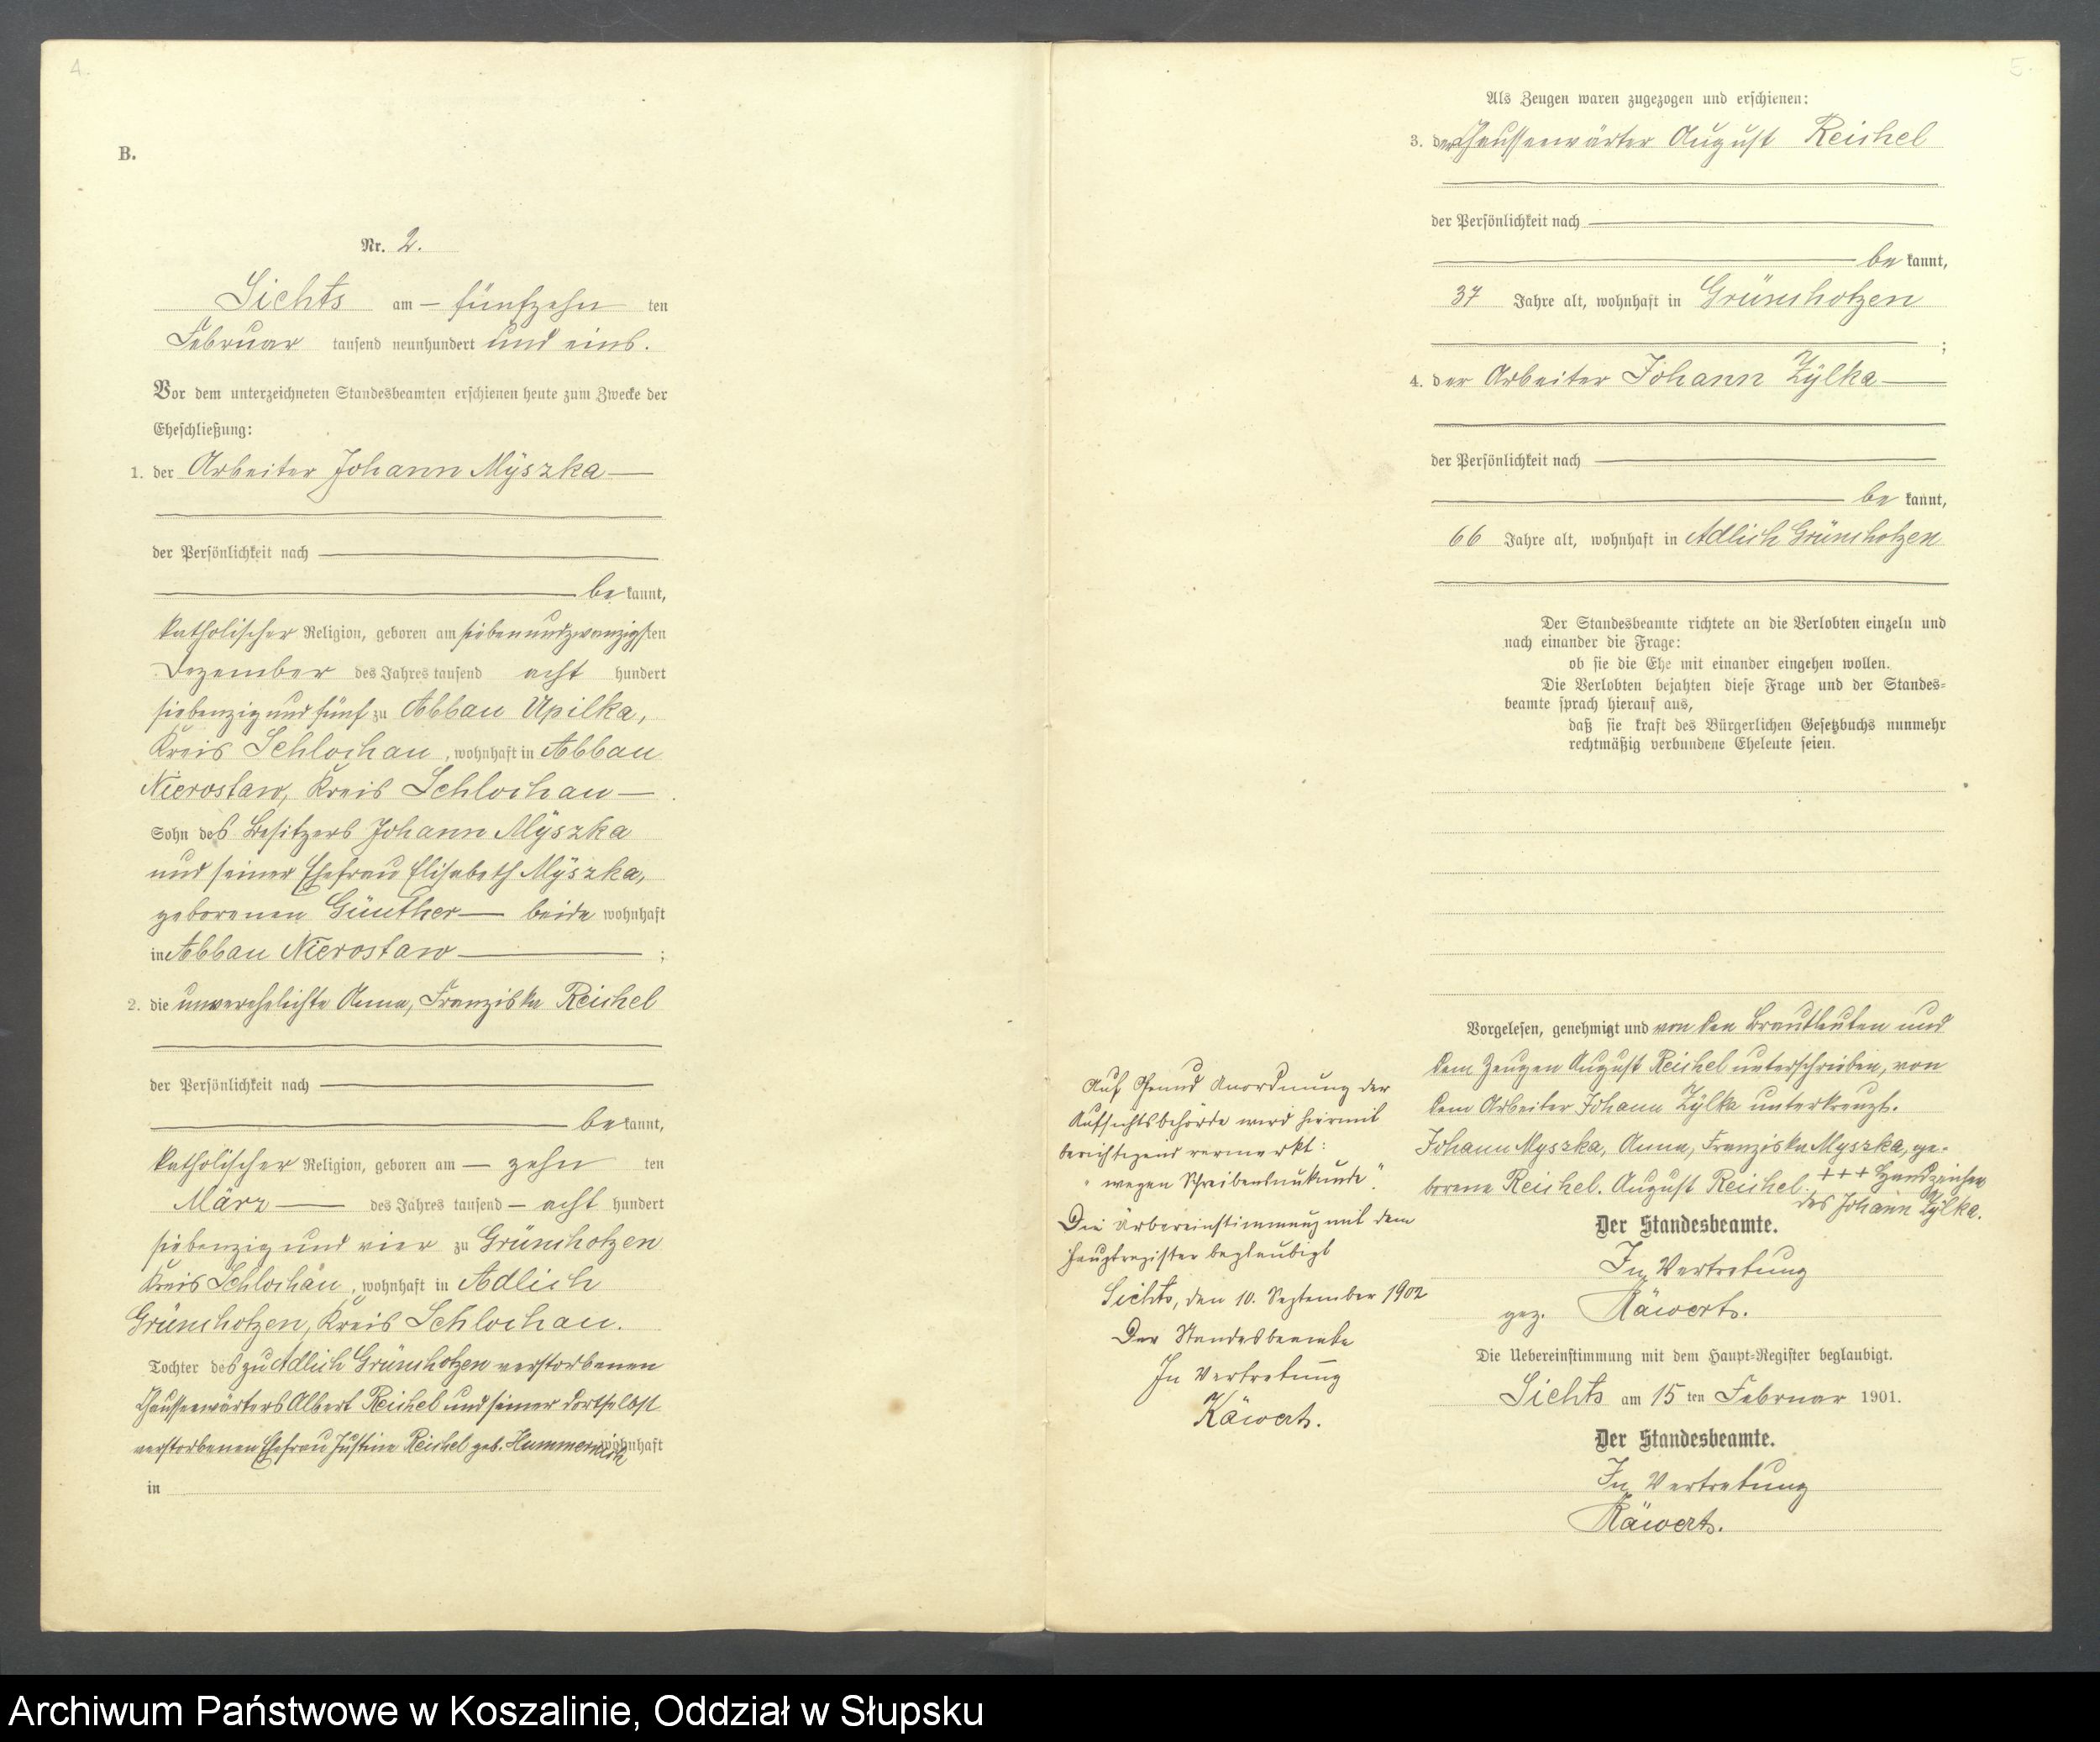 4.
B.
Nr. 2.
Lichts am — fünfzehn ten
Februar tausend neunhundert und eins.
Vor dem unterzeichneten Standesbeamten erschienen heute zum Zwecke der
Eheschließung:
1. der Arbeiter Johann Mÿszka —
der Persönlichkeit nach —
— be kannt,
katholischer Religion, geboren am siebenundzwanzigsten
Dezember des Jahres tausend acht hundert
siebenzig und fünf zu Abbau Upilka,
Kreis Schlochau, wohnhaft in Abbau
Nierostaw, Kreis Schlochau —
Sohn des Besitzers Johann Mÿszka
und seiner Ehefrau Elisabeth Mÿszka,
geborenen Günther — beide wohnhaft
in Abbau Nierostaw — ;
2. die unverehelichte Anna, Franziska Reichel
der Persönlichkeit nach —
— be kannt,
katholischer Religion, geboren am — zehn ten
März — des Jahres tausend — acht hundert
siebenzig und vier zu Grünchotzen
Kreis Schlochau, wohnhaft in Adlich
Grünchotzen, Kreis Schlochau.
Tochter des zu Adlich Grünchotzen verstorbenen
Chausseewärters Albert Reichel und seiner dortselbst
verstorbenen Ehefrau Justine Reichel geb. wohnhaft
in
5.
Als Zeugen waren zugezogen und erschienen:
3. der Chausseewärter August Reichel
der Persönlichkeit nach —
— be kannt,
37 Jahre alt, wohnhaft in Grünchotzen
— ;
4. der Arbeiter Johann Zÿlka —
der Persönlichkeit nach —
— be kannt,
66 Jahre alt, wohnhaft in Adlich Grünchotzen
Der Standesbeamte richtete an die Verlobten einzeln und
nach einander die Frage:
ob sie die Ehe mit einander eingehen wollen.
Die Verlobten bejahten diese Frage und der Standes=
beamte sprach hierauf aus,
daß sie kraft des Bürgerlichen Gesetzbuchs nunmehr
rechtmäßig verbundene Eheleute seien.
Vorgelesen, genehmigt und von den Brautleuten und
dem Zeugen August Reichel unterschrieben, von
dem Arbeiter Johann Zÿlka unterkreuzt.
Johann Myszka, Anna, Franziska Myszka, ge-
borene Reichel. August Reichel. +++ Handzeichen
des Johann Zÿlka.
Der Standesbeamte.
In Vertretung
gez. Käwert.
Die Uebereinstimmung mit dem Haupt=Register beglaubigt.
Lichts am 15 ten Februar 1901.
Der Standesbeamte.
In Vertretung
Käwert.
Auf Grund Anordnung der
Aufsichtsbehörde wird hiermit
berichtigend vermerkt:
„wegen Schreibensunkunde".
Die Uebereinstimmung mit dem
Hauptregister beglaubigt
Lichts, den 10. September 1902
Der Standesbeamte
In Vertretung
Käwert.
Archiwum Państwowe w Koszalinie, Oddział w Słupsku